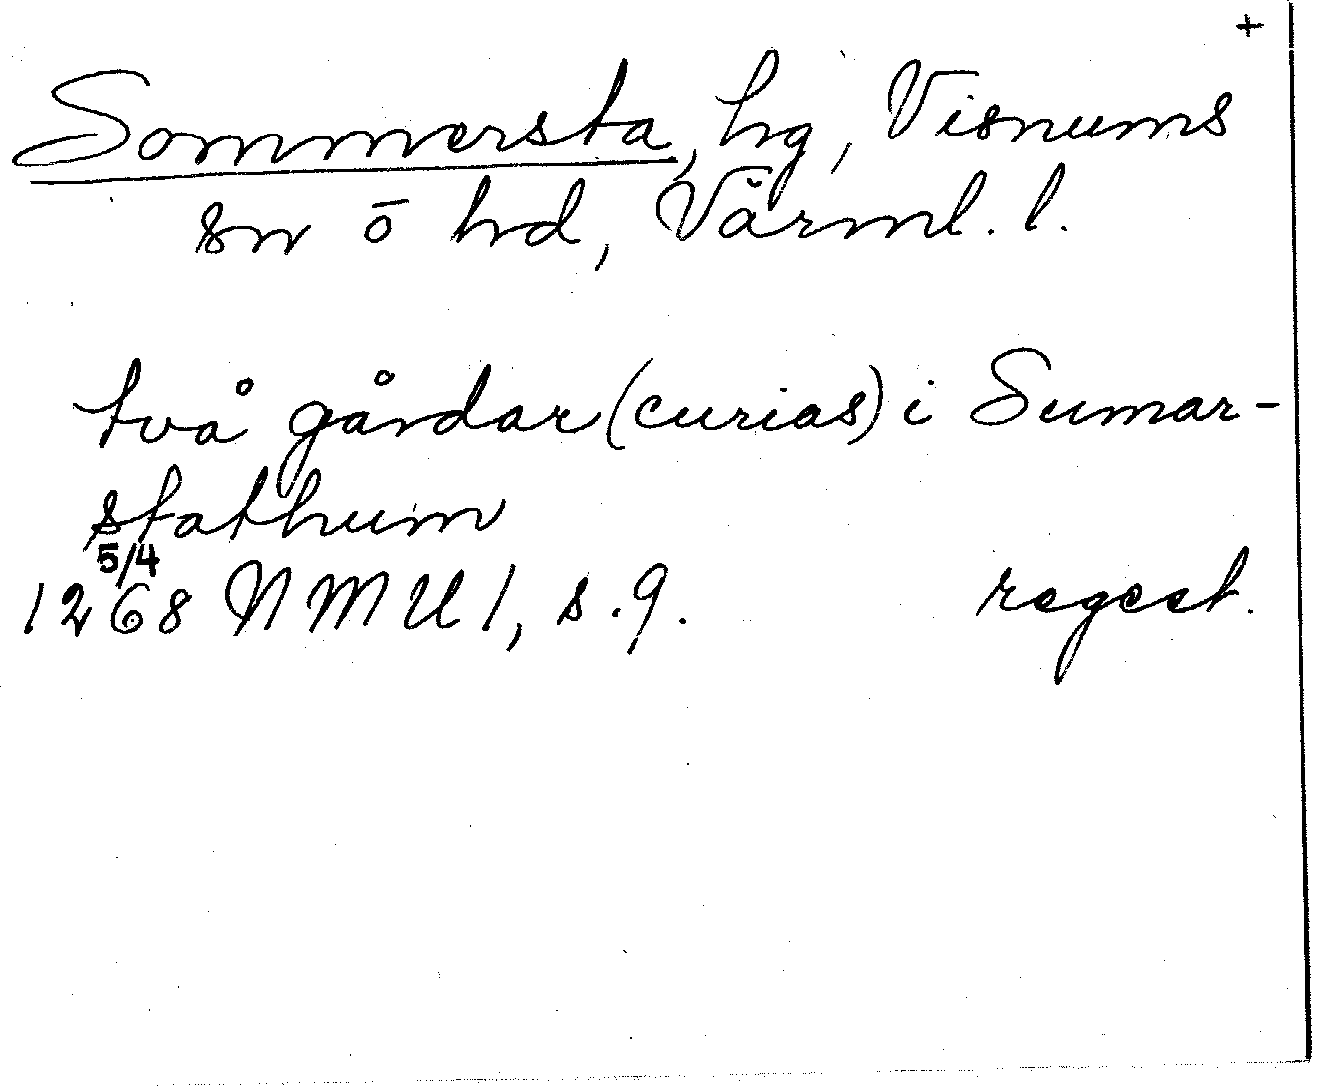 +
Sommersta, hg, Visnums
sn ō hd, Värml. l.
två gårdar (curias) i Sumar-
stathum
5/4
1268 NMU 1, s. 9. regest.